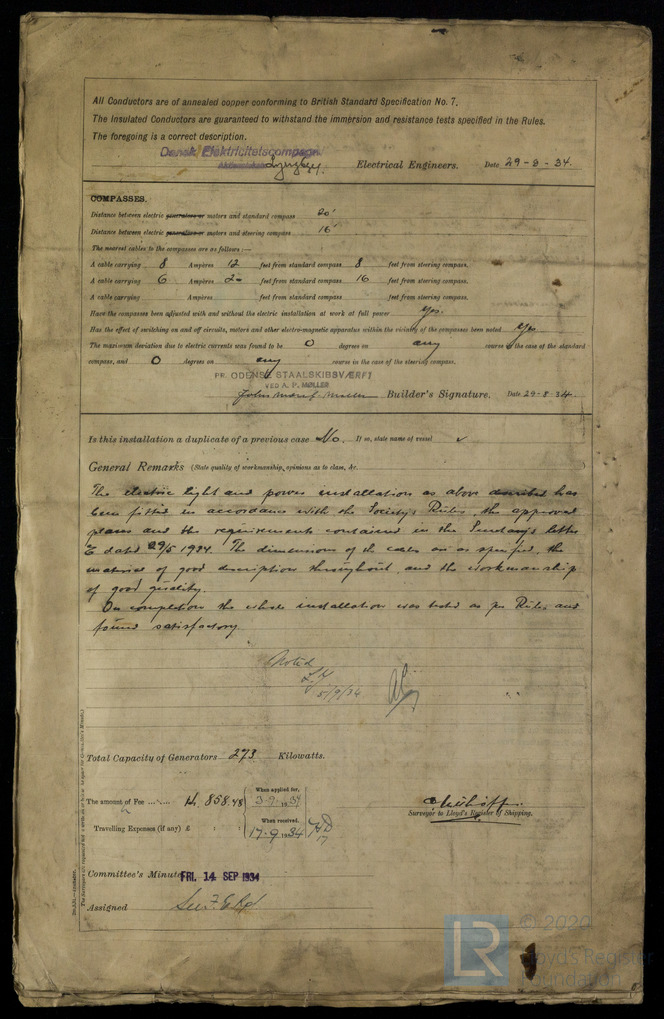 All Conductors are of annealed copper conforming to British Standard Specification No. 7.
The Insulated Conductors are guaranteed to withstand the immersion and resistance tests specified in the Rules.
The foregoing is a correct description.
Dansk Elektricitetscompagni
Electrical Engineers. Date 29-8-34.
COMPASSES.
Distance between electric generators or motors and standard compass 20'
Distance between electric generators or motors and steering compass 16'
The nearest cables to the compasses are as follows:—
A cable carrying 8 Ampères 12 feet from standard compass 8 feet from steering compass.
A cable carrying 6 Ampères 20 feet from standard compass 16 feet from steering compass.
A cable carrying Ampères feet from standard compass feet from steering compass.
Have the compasses been adjusted with and without the electric installation at work at full power Yes.
Has the effect of switching on and off circuits, motors and other electro-magnetic apparatus within the vicinity of the compasses been noted Yes
The maximum deviation due to electric currents was found to be 0 degrees on any course in the case of the standard
compass, and 0 degrees on any course in the case of the steering compass.
PR. ODENSE STAALSKIBSVÆRFT
VED A. P. MØLLER
Builder's Signature. Date 29-8-34.
Is this installation a duplicate of a previous case No. If so, state name of vessel
General Remarks (State quality of workmanship, opinions as to class, &c.
The electric light and power installation as above described has
been fitted in accordance with the Society's Rules, the approved
plans and the requirements contained in the Secretary's letter
E dated 29/5 1934. The dimensions of the cables are as specified, the
material of good description throughout, and the workmanship
of good quality.
On completion the whole installation was tested as per Rules and
found satisfactory.
Noted
Total Capacity of Generators 273 Kilowatts.
The amount of Fee 858.48
When applied for, 3-9-1934
Travelling Expenses (if any) £ : :
When received, 17-9-1934
Surveyor to Lloyd's Register of Shipping.
Committee's Minute FRI. 14 SEP 1934
Assigned
LR
© 2020
Lloyd's Register
Foundation